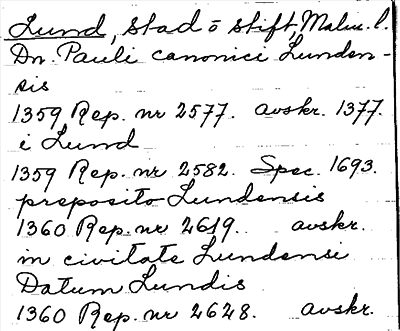 Lund, stad o stift, Malm. l.
Dn. Pauli canonici Lunden-
sis
1359 Rep. nr 2577. avskr. 1377.
i Lund
1359 Rep. nr 2582. Spec. 1693.
preposito Lundensis
1360 Rep. nr 2619. avskr.
in civitate Lundensi
Datum Lundis
1360 Rep. nr 2628. avskr.